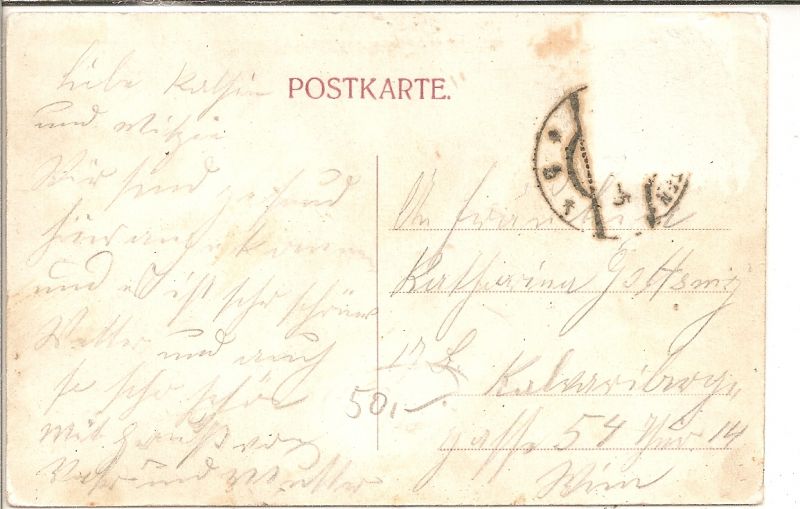 POSTKARTE.
Liebe Kathi
und Mitzi
Wir sind gesund
hier angekommen
und es ist sehr schönes
Wetter und auch
so sehr schön
mit Gruß von
Vater und Mutter
An Fräulein
Katharina
17.
Kalvarienberg
gasse 54 Thür 14
Wien
50,-